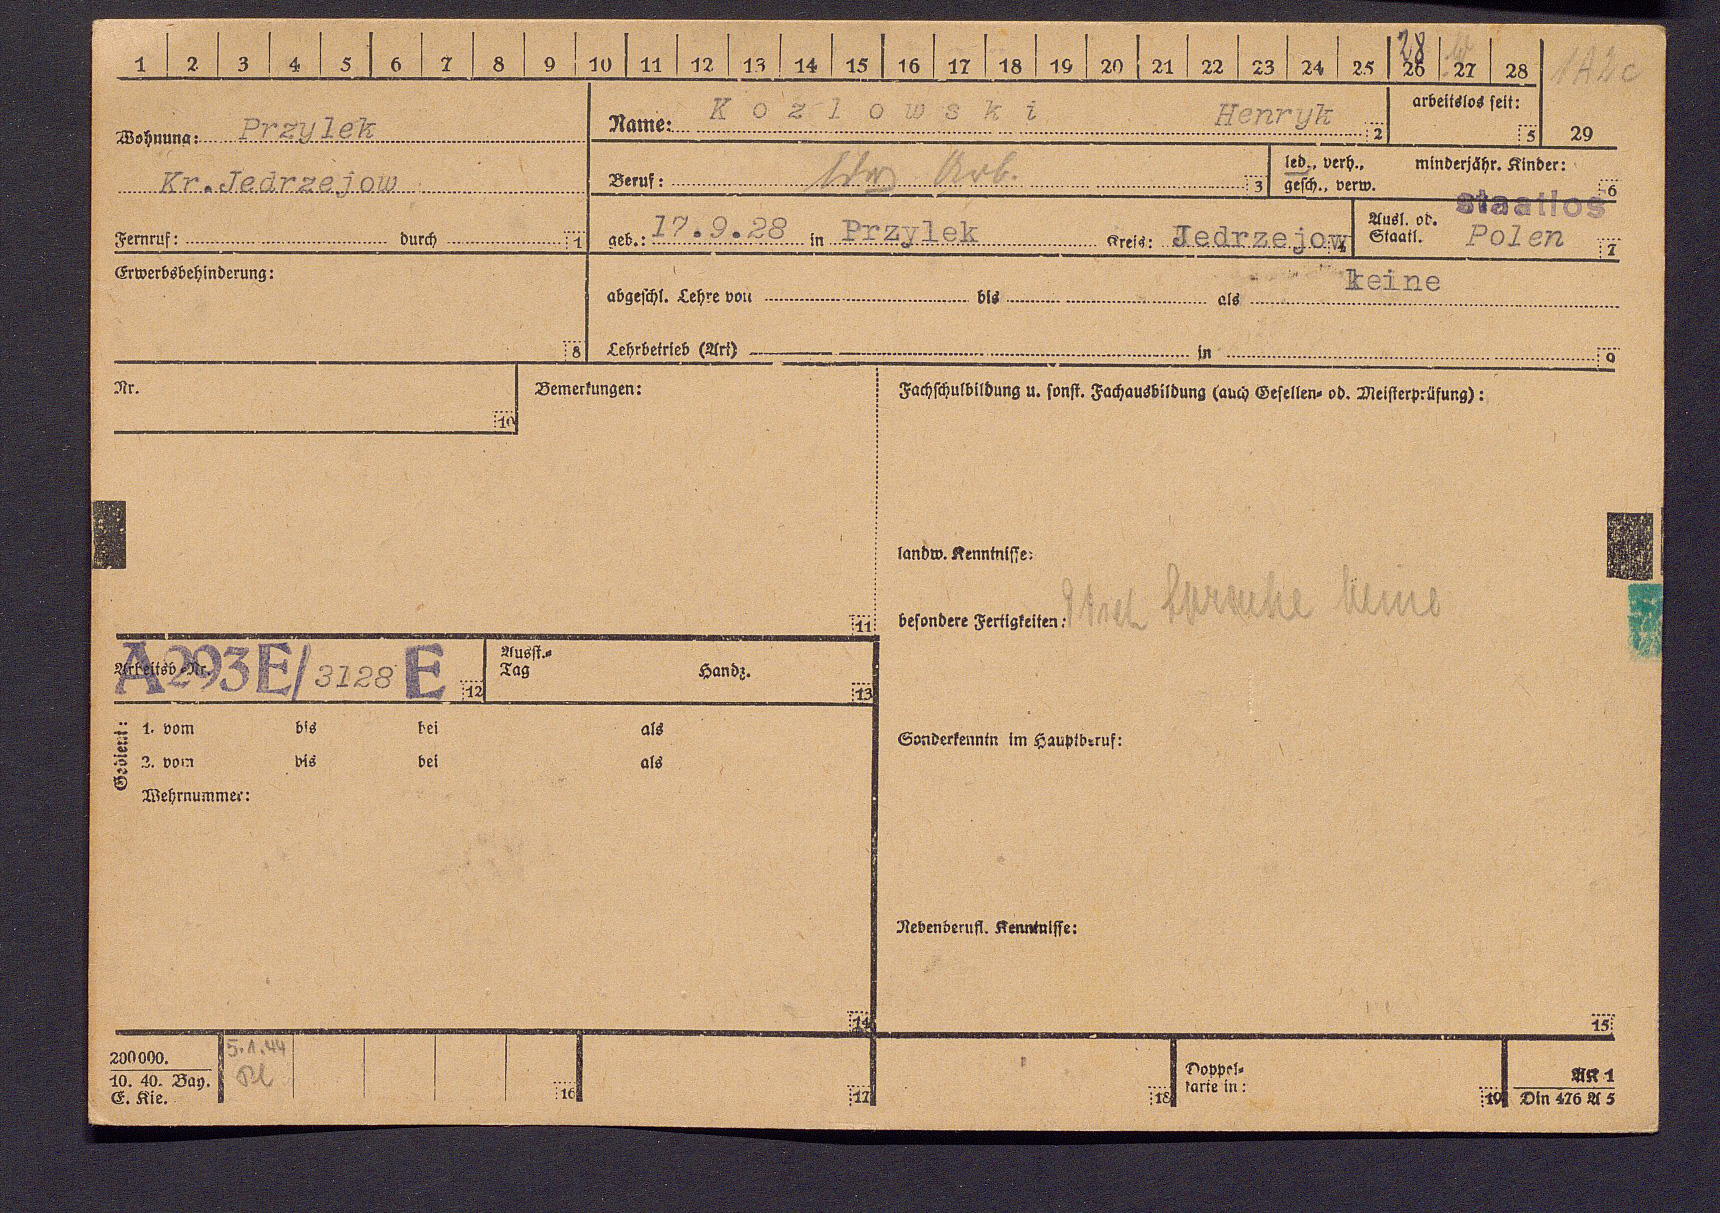 1 2 3 4 5 6 7 8 9 10 11 12 13 14 15 16 17 18 19 20 21 22 23 24 25 26 27 28
28
1A2c
Wohnung: Przylek
Kr.Jedrzejow
Fernruf: durch 1
Name: Kozlowski Henryk 2
arbeitslos seit: 5
29
Beruf: Arb. 3
led., verh., gesch., verw.
minderjähr. Kinder: 6
geb.: 17.9.28 in Przylek Kreis: Jedrzejow 4
staatlos
Ausl. od. Staatl. Polen 7
Erwerbsbehinderung: 8
abgeschl. Lehre von bis als keine
Lehrbetrieb (Art) in 9
Nr. 10
Bemerkungen: 11
Fachschulbildung u. sonst. Fachausbildung (auch Gesellen- od. Meisterprüfung):
landw. Kenntnisse:
besondere Fertigkeiten: Dtsch Sprache keine
Sonderkenntn im Hauptberuf:
Nebenberufl. Kenntnisse:
15
Arbeitsb.-Nr. A293E/3128 E 12
Ausst.-Tag Handz. 13
Gedient:
1. vom bis bei als
2. vom bis bei als
Wehrnummer:
14
200000.
10. 40. Bay.
E. Kie.
5.1.44
16
17
18
Doppel-
karte in: 19
AK 1
Din 476 A 5